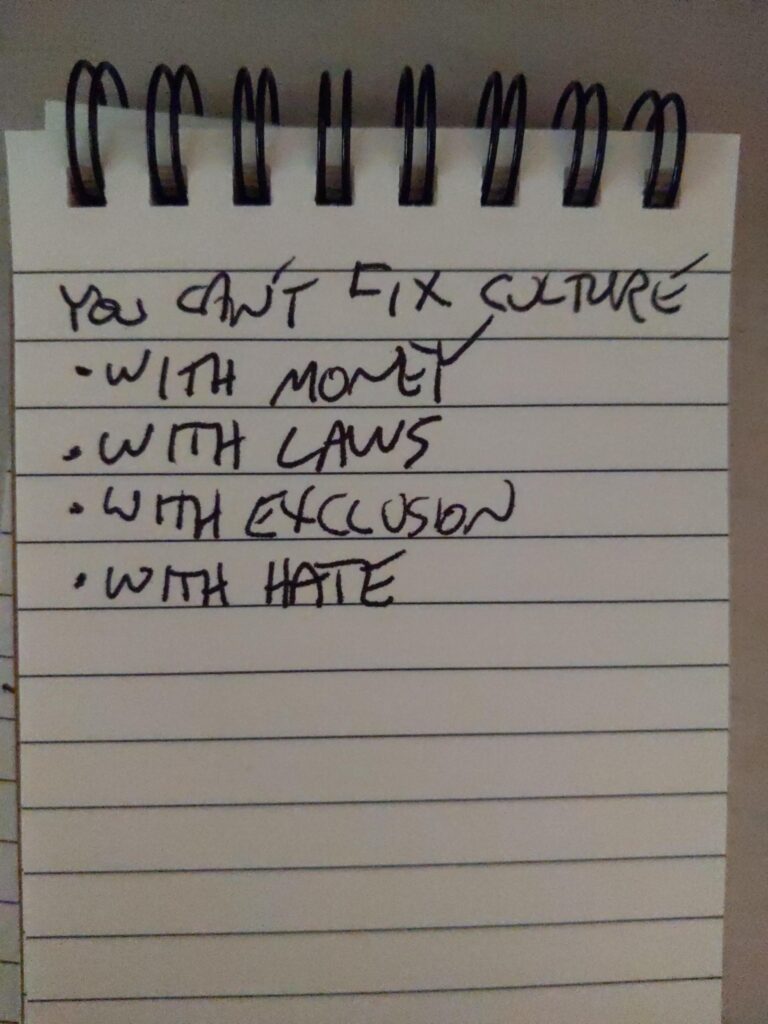 YOU CAN'T FIX CULTURE
• WITH MONEY
• WITH LAWS
• WITH EXCLUSION
• WITH HATE